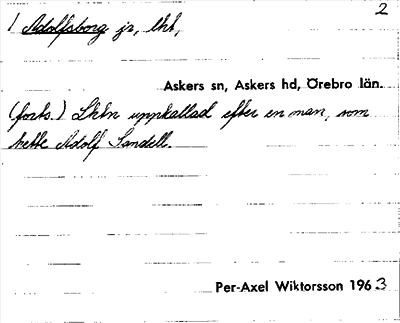 2
1 Adolfsborg jr, lht,
Askers sn, Askers hd, Örebro län.
(forts.) Lhtn uppkallad efter en man, som
hette Adolf Sandell.
Per-Axel Wiktorsson 1963